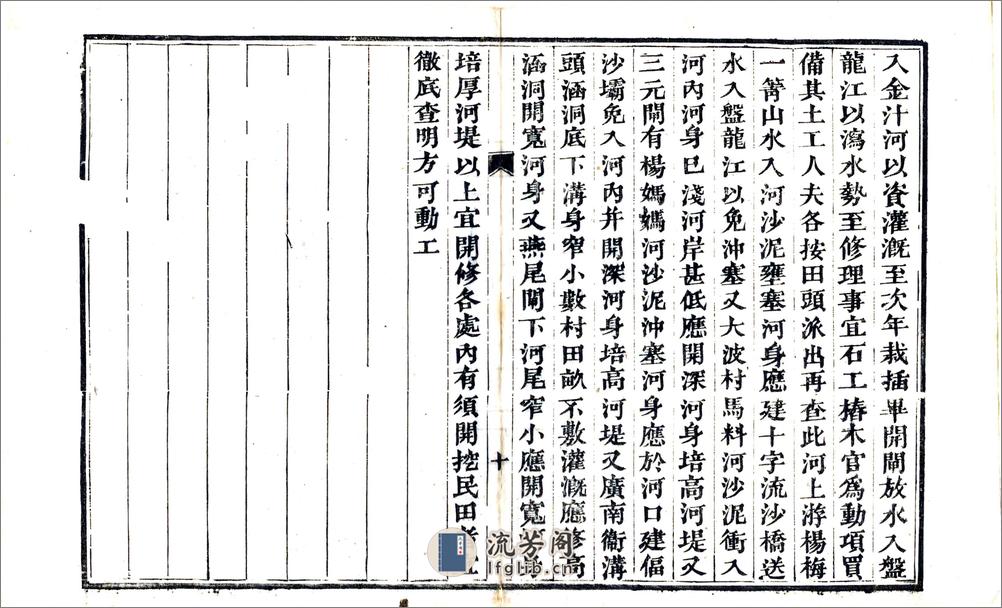 入金汁河以資灌漑至次年栽插畢開閘放水入盤
龍江以瀉水勢至修理事宜石工樁木官爲動項買
備其土工人夫各按田頭派出再查此河上游楊梅
一箐山水入河沙泥壅塞河身應建十字流沙橋送
水入盤龍江以免沖塞又大波村馬料河沙泥衝入
河內河身已淺河岸甚低應開深河身培高河堤又
三元閘有楊媽媽河沙泥沖塞河身應於河口建偪
沙壩免入河內幷開深河身培高河堤又廣南衞溝
頭涵洞底下溝身窄小數村田畝不敷灌漑應修高
涵洞開寬河身又燕尾閘下河尾窄小應開寬身
十
培厚河堤以上宜開修各處內有須開挖民田
徹底查明方可動工
流芳阁
lfglib.cn